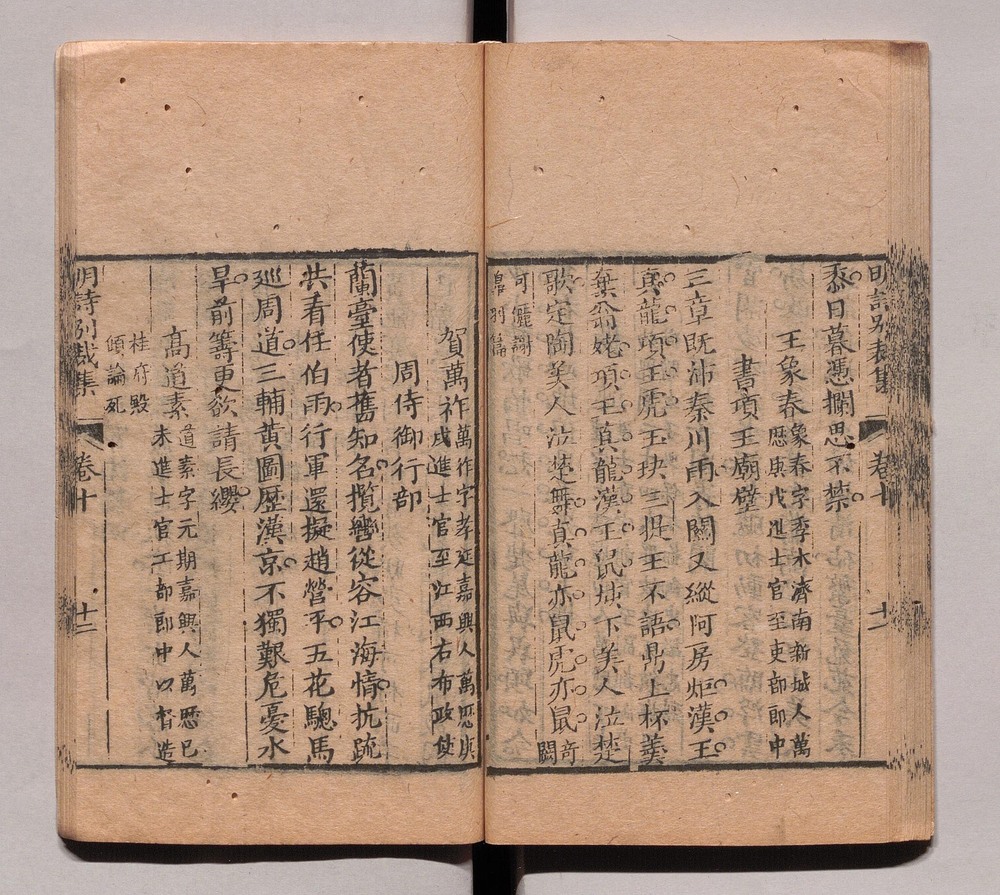 明詩別裁集 卷十 十二
黍日暮憑欄思不禁
王象春 象春字季木濟南新城人萬
曆庚戌進士官至吏部郎中
書項王廟壁
三章既沛秦川雨入關又縱阿房炬漢王
真龍項王虎玉玦三提王不語鼎上杯羹
棄翁姥項王真龍漢王鼠垓下美人泣楚
歌定陶美人泣楚舞真龍亦鼠虎亦鼠 奇闢
可儷謝
皐羽篇
賀萬祚 萬作字孝延嘉興人萬曆庚
戌進士官至江西右布政使
周侍御行部
蘭臺使者舊知名攬轡從容江海情抗疏
共看任伯雨行軍還擬趙營平五花驄馬
巡周道三輔黃圖歷漢京不獨艱危憂水
旱前籌更欲請長纓
高道素 道素字元期嘉興人萬曆巳
未進士官工部郎中以督造
桂府毀
傾論死
明詩別裁集 卷十 十二